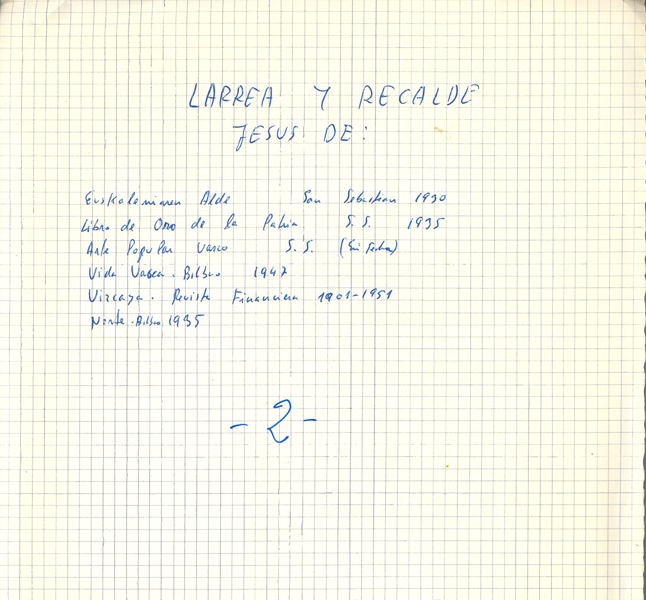 LARREA Y RECALDE
JESUS DE:
Euskalerriaren Alde San Sebastian 1930
Libro de Oro de la Patria S.S. 1935
Arte Popular Vasco S.S. (Sin fecha)
Vida Vasca. Bilbao 1947
Vizcaya. Revista Financiera 1901-1951
Norte. Bilbao 1935
- 2 -